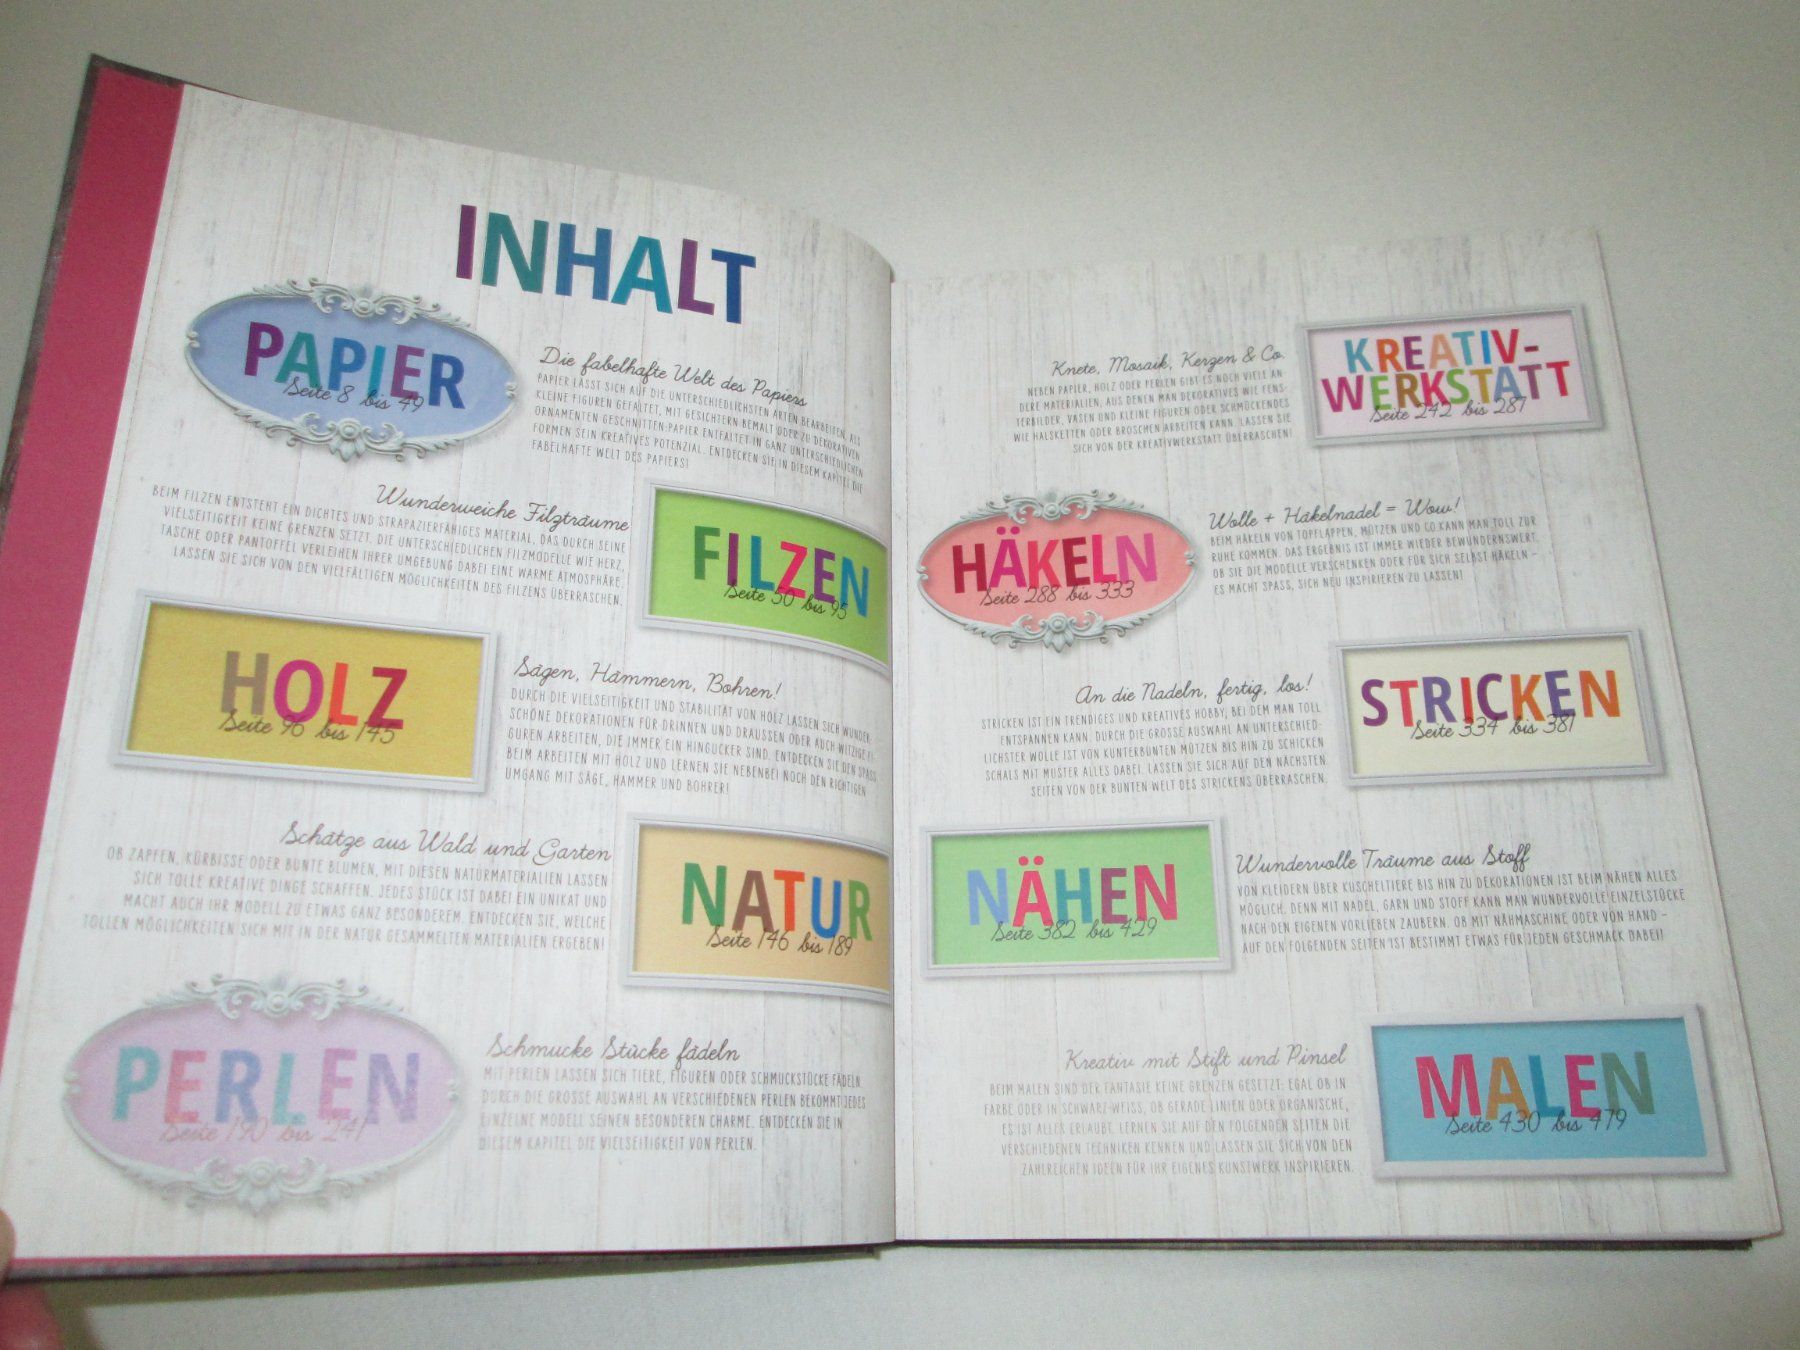 INHALT
PAPIER
Seite 8 bis 49
Die fabelhafte Welt des Papiers
PAPIER LÄSST SICH AUF DIE UNTERSCHIEDLICHSTEN ARTEN BEARBEITEN. ALS
KLEINE FIGUREN GEFALTET, MIT GESICHTERN BEMALT ODER ZU DEKORATIVEN
ORNAMENTEN GESCHNITTEN-PAPIER ENTFALTET IN GANZ UNTERSCHIEDLICHEN
FORMEN SEIN KREATIVES POTENZIAL. ENTDECKEN SIE IN DIESEM KAPITEL DIE
FABELHAFTE WELT DES PAPIERS!
Wunderweiche Filzträume
BEIM FILZEN ENTSTEHT EIN DICHTES UND STRAPAZIERFÄHIGES MATERIAL, DAS DURCH SEINE
VIELSEITIGKEIT KEINE GRENZEN SETZT. DIE UNTERSCHIEDLICHEN FILZMODELLE WIE HERZ,
TASCHE ODER PANTOFFEL VERLEIHEN IHRER UMGEBUNG DABEI EINE WARME ATMOSPHÄRE.
LASSEN SIE SICH VON DEN VIELFÄLTIGEN MÖGLICHKEITEN DES FILZENS ÜBERRASCHEN.
FILZEN
Seite 50 bis 95
HOLZ
Seite 96 bis 145
Sägen, Hämmern, Bohren!
DURCH DIE VIELSEITIGKEIT UND STABILITÄT VON HOLZ LASSEN SICH WUNDER-
SCHÖNE DEKORATIONEN FÜR DRINNEN UND DRAUSSEN ODER AUCH WITZIGE FI-
GUREN ARBEITEN, DIE IMMER EIN HINGUCKER SIND. ENTDECKEN SIE DEN SPASS
BEIM ARBEITEN MIT HOLZ UND LERNEN SIE NEBENBEI NOCH DEN RICHTIGEN
UMGANG MIT SÄGE, HAMMER UND BOHRER!
Schätze aus Wald und Garten
OB ZAPFEN, KÜRBISSE ODER BUNTE BLUMEN, MIT DIESEN NATURMATERIALIEN LASSEN
SICH TOLLE KREATIVE DINGE SCHAFFEN. JEDES STÜCK IST DABEI EIN UNIKAT UND
MACHT AUCH IHR MODELL ZU ETWAS GANZ BESONDEREM. ENTDECKEN SIE, WELCHE
TOLLEN MÖGLICHKEITEN SICH MIT IN DER NATUR GESAMMELTEN MATERIALIEN ERGEBEN!
NATUR
Seite 146 bis 189
PERLEN
Seite 190 bis 241
Schmucke Stücke fädeln
MIT PERLEN LASSEN SICH TIERE, FIGUREN ODER SCHMUCKSTÜCKE FÄDELN.
DURCH DIE GROSSE AUSWAHL AN VERSCHIEDENEN PERLEN BEKOMMT JEDES
EINZELNE MODELL SEINEN BESONDEREN CHARME. ENTDECKEN SIE IN
DIESEM KAPITEL DIE VIELSEITIGKEIT VON PERLEN.
Knete, Mosaik, Kerzen & Co.
NEBEN PAPIER, HOLZ ODER PERLEN GIBT ES NOCH VIELE AN-
DERE MATERIALIEN, AUS DENEN MAN DEKORATIVES WIE FENS-
TERBILDER, VASEN UND KLEINE FIGUREN ODER SCHMÜCKENDES
WIE HALSKETTEN ODER BROSCHEN ARBEITEN KANN. LASSEN SIE
SICH VON DER KREATIVWERKSTATT ÜBERRASCHEN!
KREATIV-
WERKSTATT
Seite 242 bis 287
HÄKELN
Seite 288 bis 333
Wolle + Häkelnadel = Wow!
BEIM HÄKELN VON TOPFLAPPEN, MÜTZEN UND CO KANN MAN TOLL ZUR
RUHE KOMMEN. DAS ERGEBNIS IST IMMER WIEDER BEWUNDERNSWERT.
OB SIE DIE MODELLE VERSCHENKEN ODER FÜR SICH SELBST HÄKELN –
ES MACHT SPASS, SICH NEU INSPIRIEREN ZU LASSEN!
An die Nadeln, fertig, los!
STRICKEN IST EIN TRENDIGES UND KREATIVES HOBBY, BEI DEM MAN TOLL
ENTSPANNEN KANN. DURCH DIE GROSSE AUSWAHL AN UNTERSCHIED-
LICHSTER WOLLE IST VON KUNTERBUNTEN MÜTZEN BIS HIN ZU SCHICKEN
SCHALS MIT MUSTER ALLES DABEI. LASSEN SIE SICH AUF DEN NÄCHSTEN
SEITEN VON DER BUNTEN WELT DES STRICKENS ÜBERRASCHEN.
STRICKEN
Seite 334 bis 381
NÄHEN
Seite 382 bis 429
Wundervolle Träume aus Stoff
VON KLEIDERN ÜBER KUSCHELTIERE BIS HIN ZU DEKORATIONEN IST BEIM NÄHEN ALLES
MÖGLICH. DENN MIT NADEL, GARN UND STOFF KANN MAN WUNDERVOLLE EINZELSTÜCKE
NACH DEN EIGENEN VORLIEBEN ZAUBERN. OB MIT NÄHMASCHINE ODER VON HAND –
AUF DEN FOLGENDEN SEITEN IST BESTIMMT ETWAS FÜR JEDEN GESCHMACK DABEI!
Kreativ mit Stift und Pinsel
BEIM MALEN SIND DER FANTASIE KEINE GRENZEN GESETZT: EGAL OB IN
FARBE ODER IN SCHWARZ-WEISS, OB GERADE LINIEN ODER ORGANISCHE,
ES IST ALLES ERLAUBT. LERNEN SIE AUF DEN FOLGENDEN SEITEN DIE
VERSCHIEDENEN TECHNIKEN KENNEN UND LASSEN SIE SICH VON DEN
ZAHLREICHEN IDEEN FÜR IHR EIGENES KUNSTWERK INSPIRIEREN.
MALEN
Seite 430 bis 479